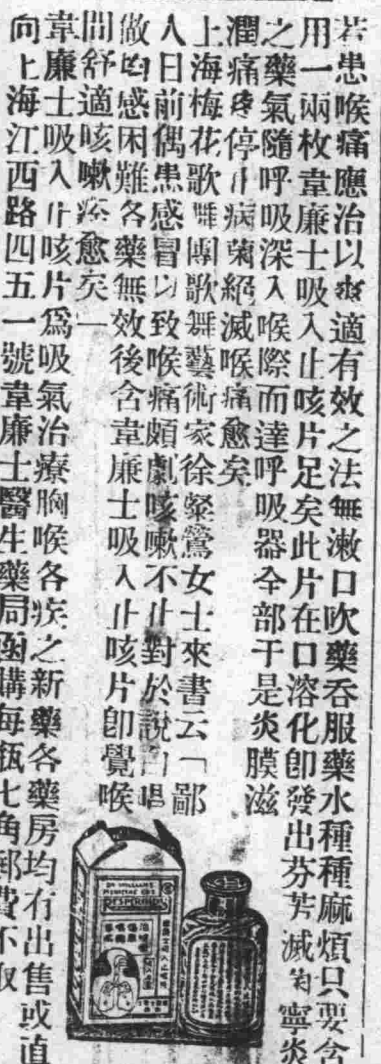 若患喉痛應治以爽適有效之法無漱口吹藥呑服藥水種種麻煩只要含
用一兩枚韋廉士吸入止咳片足矣此片在口溶化卽發出芬芳滅菌寧炎
之藥氣隨呼吸深入喉際而達呼吸器全部于是炎膜滋
潤痛停止病菌絕滅喉痛愈矣
上海梅花歌舞團歌舞藝術家徐粲鶯女士來書云「鄙
人日前偶患感冒以致喉痛頗劇咳嗽不止對於說白唱
做均感困難各藥無效後含韋廉士吸入止咳片卽覺喉
間舒適咳嗽痊愈矣」
韋廉士吸入止咳片爲吸氣治療胸喉各疾之新藥各藥房均有出售或直
向上海江西路四五一號韋廉士醫生藥局函購每瓶七角郵費不取
DR WILLIAMS